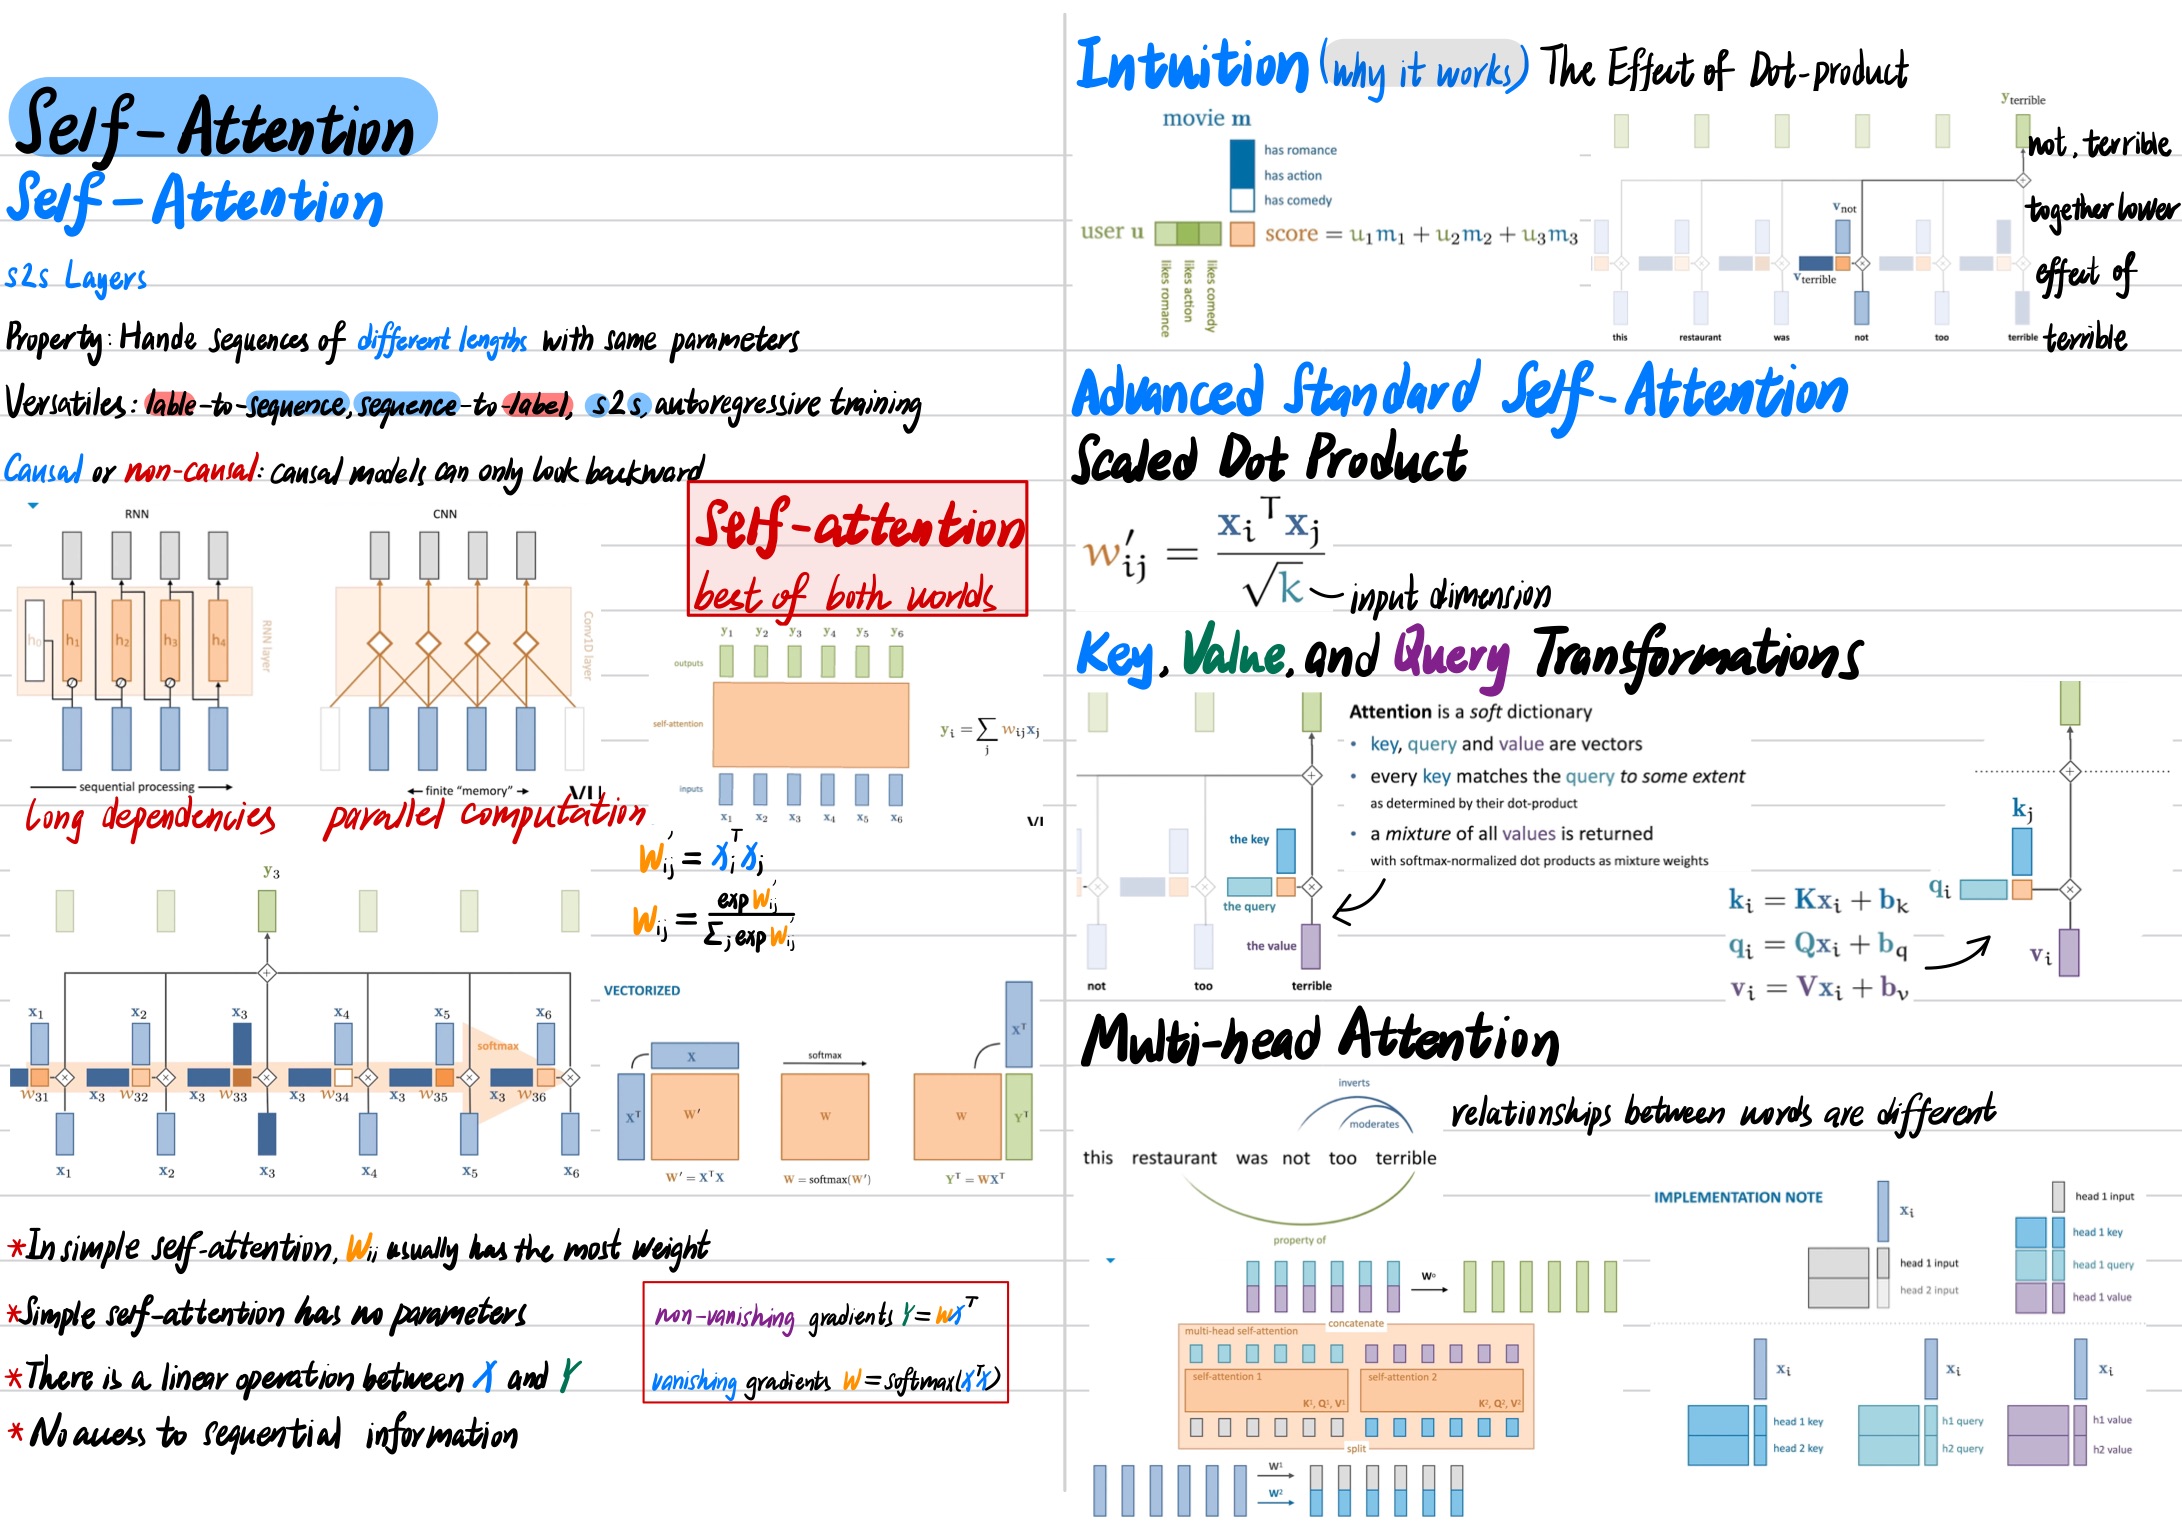 Self-Attention
Self-Attention
s2s Layers
Property: Hande sequences of different lengths with same parameters
Versatiles: lable-to-sequence, sequence-to-label, s2s, autoregressive training
Causal or non-causal: causal models can only look backward
RNN
CNN
h₀ h₁ h₂ h₃ h₄
RNN layer
Conv1D layer
sequential processing
finite "memory"
long dependencies
parallel computation
Self-attention
best of both worlds
y₁ y₂ y₃ y₄ y₅ y₆
outputs
self-attention
inputs
x₁ x₂ x₃ x₄ x₅ x₆
yᵢ = ∑ⱼ wᵢⱼxⱼ
w'ᵢⱼ = xᵢᵀxⱼ
wᵢⱼ = exp w'ᵢⱼ / ∑ⱼ exp w'ᵢⱼ
y₃
x₁ x₂ x₃ x₄ x₅ x₆
softmax
w₃₁ x₃ w₃₂ x₃ w₃₃ x₃ w₃₄ x₃ w₃₅ x₃ w₃₆
x₁ x₂ x₃ x₄ x₅ x₆
VECTORIZED
X
Xᵀ
W'
W' = XᵀX
softmax
W
W = softmax(W')
Xᵀ
W
Yᵀ
Yᵀ = WXᵀ
*In simple self-attention, Wᵢᵢ usually has the most weight
*Simple self-attention has no parameters
*There is a linear operation between X and Y
*No access to sequential information
non-vanishing gradients Y=WXᵀ
vanishing gradients W=softmax(XᵀX)
Intuition (why it works) The Effect of Dot-product
movie m
has romance
has action
has comedy
user u
score = u₁m₁ + u₂m₂ + u₃m₃
likes romance
likes action
likes comedy
y_terrible
v_not
v_terrible
this restaurant was not too terrible
not, terrible
together lower
effect of
terrible
Advanced Standard Self-Attention
Scaled Dot Product
w'ᵢⱼ = xᵢᵀxⱼ / √k
input dimension
Key, Value, and Query Transformations
the key
the query
the value
not too terrible
Attention is a soft dictionary
• key, query and value are vectors
• every key matches the query to some extent
as determined by their dot-product
• a mixture of all values is returned
with softmax-normalized dot products as mixture weights
kᵢ = Kxᵢ + b_k
qᵢ = Qxᵢ + b_q
vᵢ = Vxᵢ + b_v
kⱼ
qᵢ
vᵢ
Multi-head Attention
inverts
moderates
this restaurant was not too terrible
property of
relationships between words are different
Wᵒ
concatenate
multi-head self-attention
self-attention 1
K¹, Q¹, V¹
self-attention 2
K², Q², V²
split
W¹
W²
IMPLEMENTATION NOTE
xᵢ
head 1 input
head 2 input
head 1 input
head 1 key
head 1 query
head 1 value
xᵢ
head 1 key
head 2 key
xᵢ
h1 query
h2 query
xᵢ
h1 value
h2 value